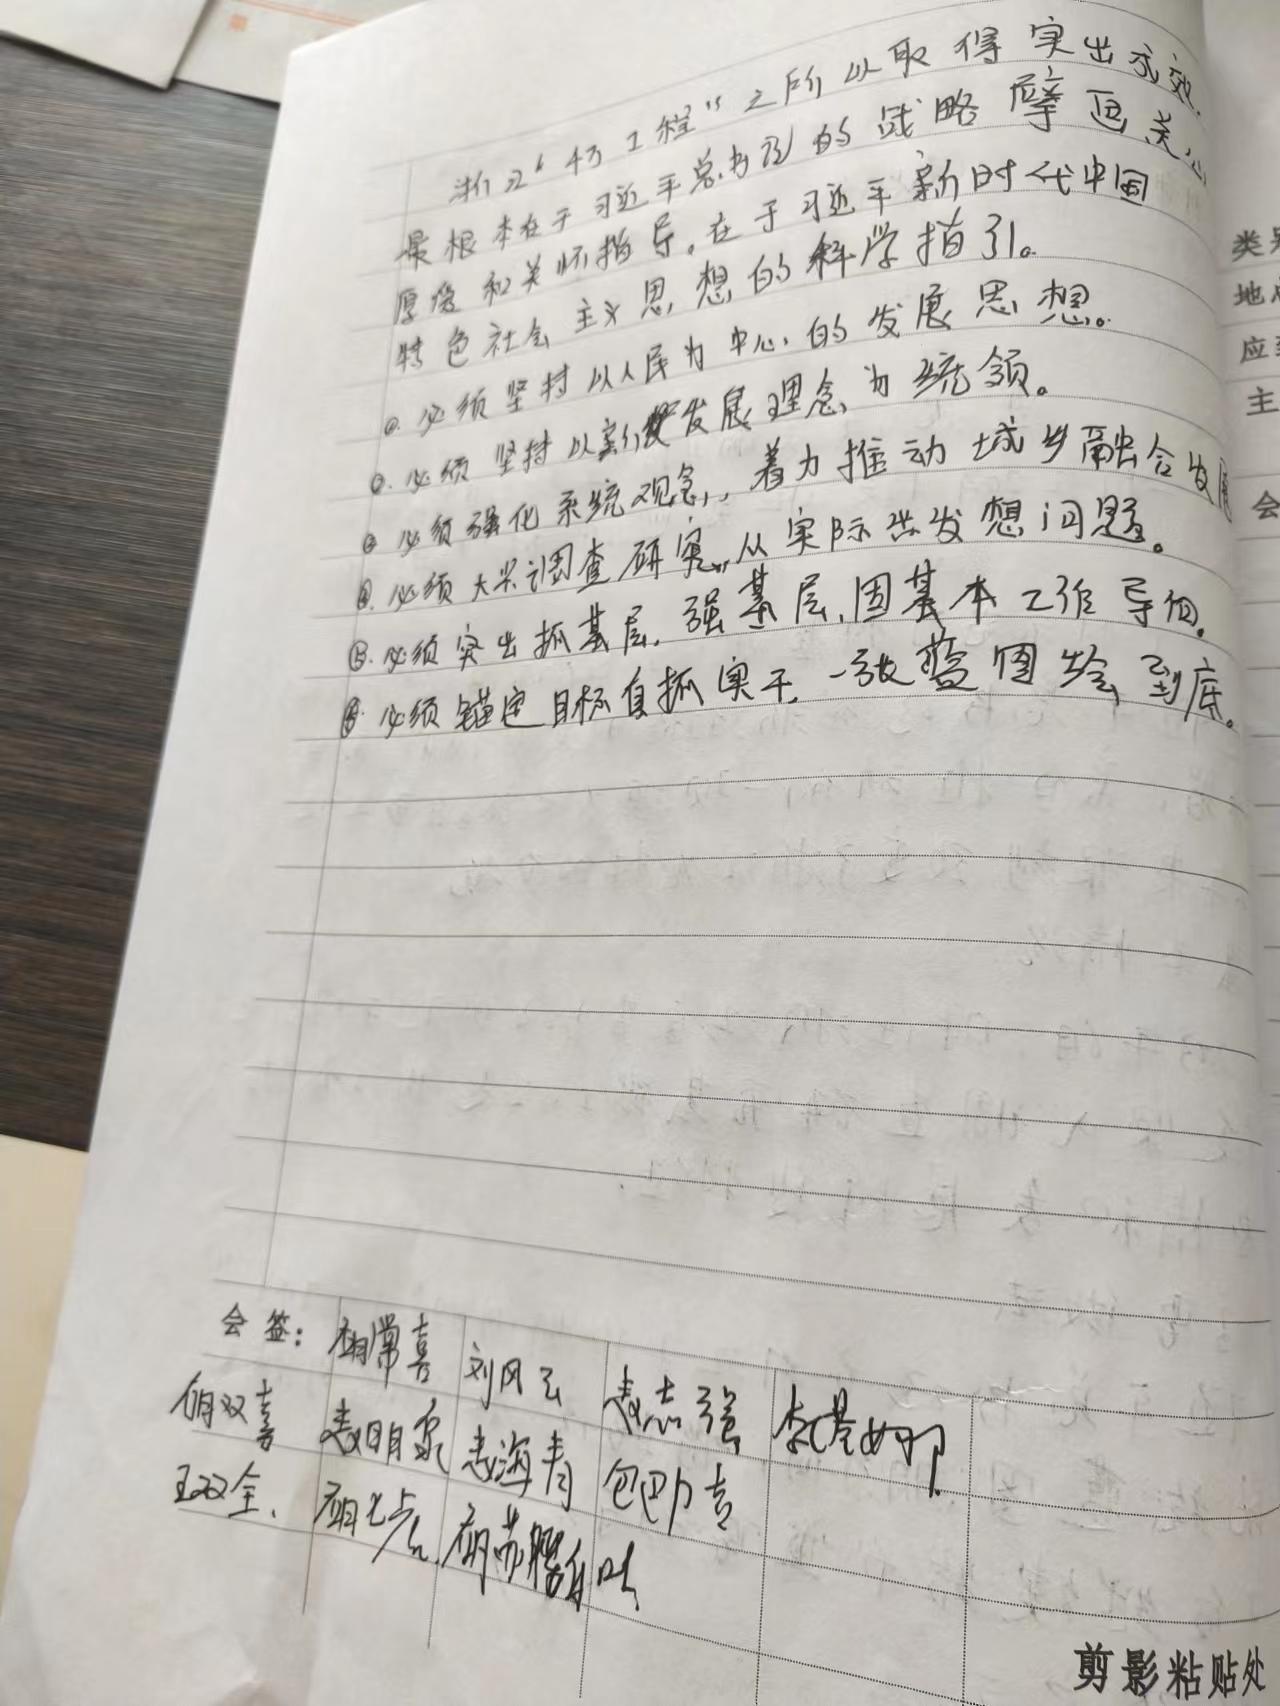 浙江"千万工程"之所以取得突出成效.
最根本在于习近平总书记的战略擘画关心
厚爱和关怀指导。在于习近平新时代中国
特色社会主义思想的科学指引。
①.必须坚持以人民为中心的发展思想。
②.必须坚持以新发展理念为统领。
③必须强化系统观念,着力推动城乡融合发展
④.必须大兴调查研究,从实际出发想问题。
⑤.必须突出抓基层.强基层,固基本工作导向。
⑥.必须锚定目标真抓实干,一张蓝图绘到底。
会签: 常喜 刘风云 志强
双喜 海青 包巴力吉
王双全.
剪影粘贴处
类
地
应
主
会